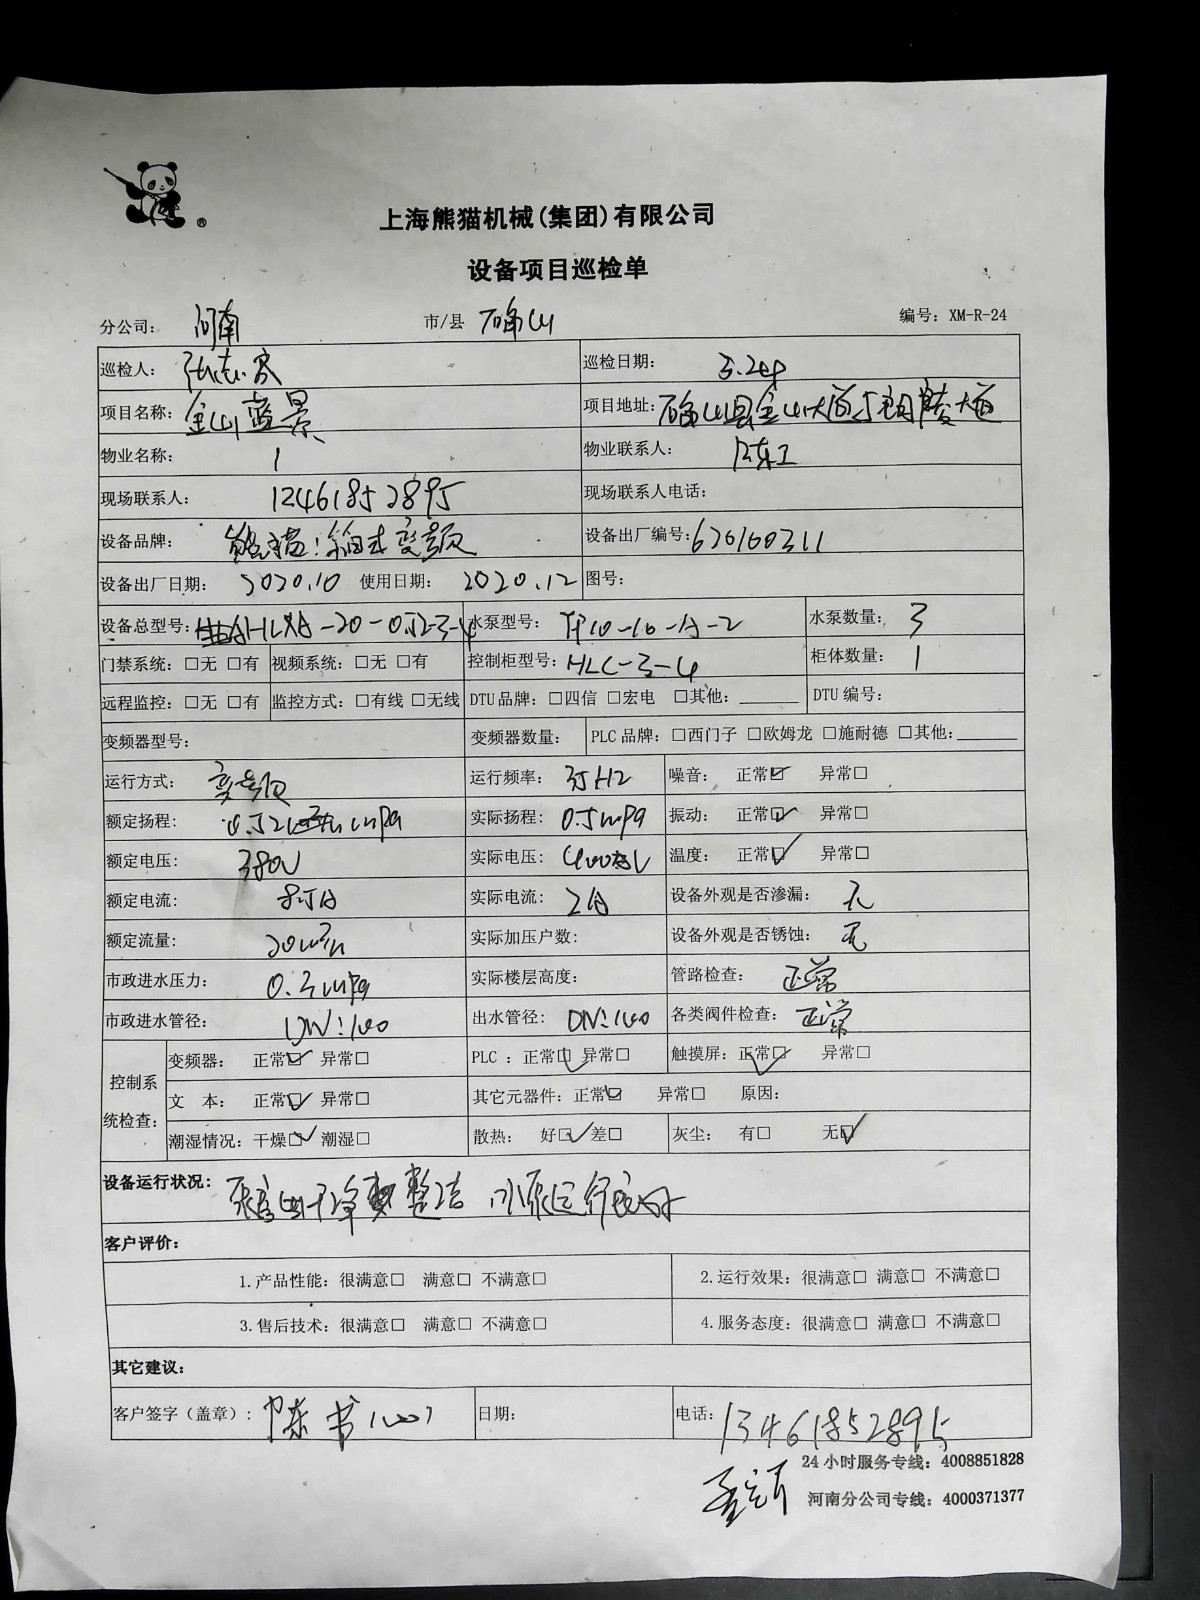 上海熊猫机械(集团)有限公司
设备项目巡检单
分公司: 河南 市/县 确山 编号: XM-R-24
巡检人: 张志富 巡检日期: 3.24
项目名称: 金山蓝景 项目地址: 确山县金山大道与铜陵大道
物业名称: / 物业联系人: 陈工
现场联系人: 12461852895 现场联系人电话:
设备品牌: 熊猫:箱式变频 设备出厂编号: 620160311
设备出厂日期: 2020.10 使用日期: 2020.12 图号:
设备总型号: -20-0.52-3-4 水泵型号: 10-10-A-2 水泵数量: 3
门禁系统: □无 □有 视频系统: □无 □有 控制柜型号: HLC-3-4 柜体数量: 1
远程监控: □无 □有 监控方式: □有线 □无线 DTU品牌: □四信 □宏电 □其他: ______ DTU编号:
变频器型号: 变频器数量: PLC品牌: □西门子 □欧姆龙 □施耐德 □其他: ______
运行方式: 变频 运行频率: 35HZ 噪音: 正常☑ 异常□
额定扬程: 0.52 mpa 实际扬程: 0.5mpa 振动: 正常☑ 异常□
额定电压: 380V 实际电压: 400V 温度: 正常☑ 异常□
额定电流: 8.5A 实际电流: 2A 设备外观是否渗漏: 无
额定流量: 20m³/h 实际加压户数: 设备外观是否锈蚀: 无
市政进水压力: 0.3mpa 实际楼层高度: 管路检查: 正常
市政进水管径: DN:100 出水管径: DN:100 各类阀件检查: 正常
控制系统检查: 变频器: 正常☑ 异常□ PLC: 正常☑ 异常□ 触摸屏: 正常☑ 异常□
文 本: 正常☑ 异常□ 其它元器件: 正常☑ 异常□ 原因:
潮湿情况: 干燥☑ 潮湿□ 散热: 好☑ 差□ 灰尘: 有□ 无☑
设备运行状况: 泵房干净整洁 水泵运行良好
客户评价:
1.产品性能: 很满意□ 满意□ 不满意□ 2.运行效果: 很满意□ 满意□ 不满意□
3.售后技术: 很满意□ 满意□ 不满意□ 4.服务态度: 很满意□ 满意□ 不满意□
其它建议:
客户签字（盖章）: 日期: 电话: 13461852895
24小时服务专线: 4008851828
河南分公司专线: 4000371377